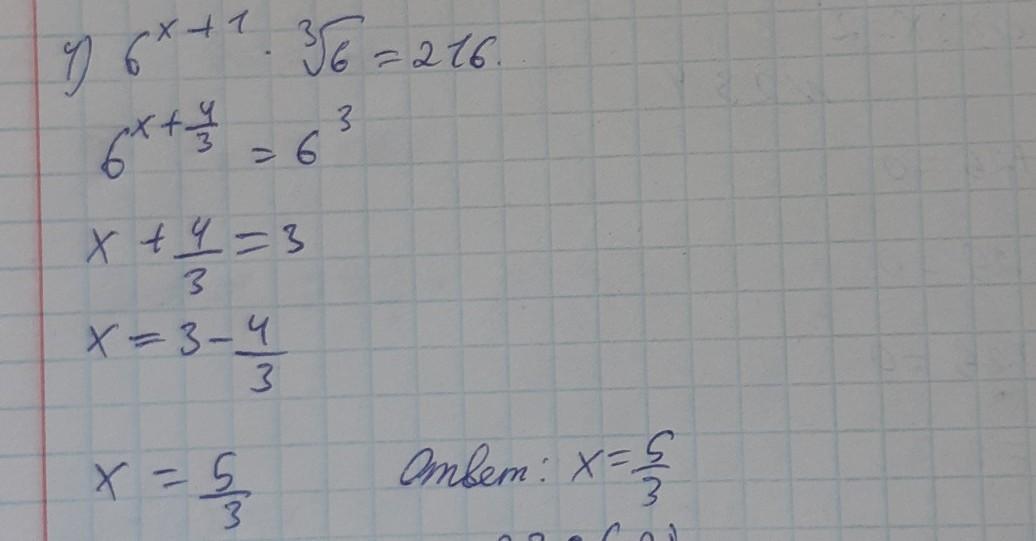 1) 6^{x+1} · ∛6 = 216.
6^{x+4/3} = 6^3
x + 4/3 = 3
x = 3 - 4/3
x = 5/3 Ответ: x = 5/3